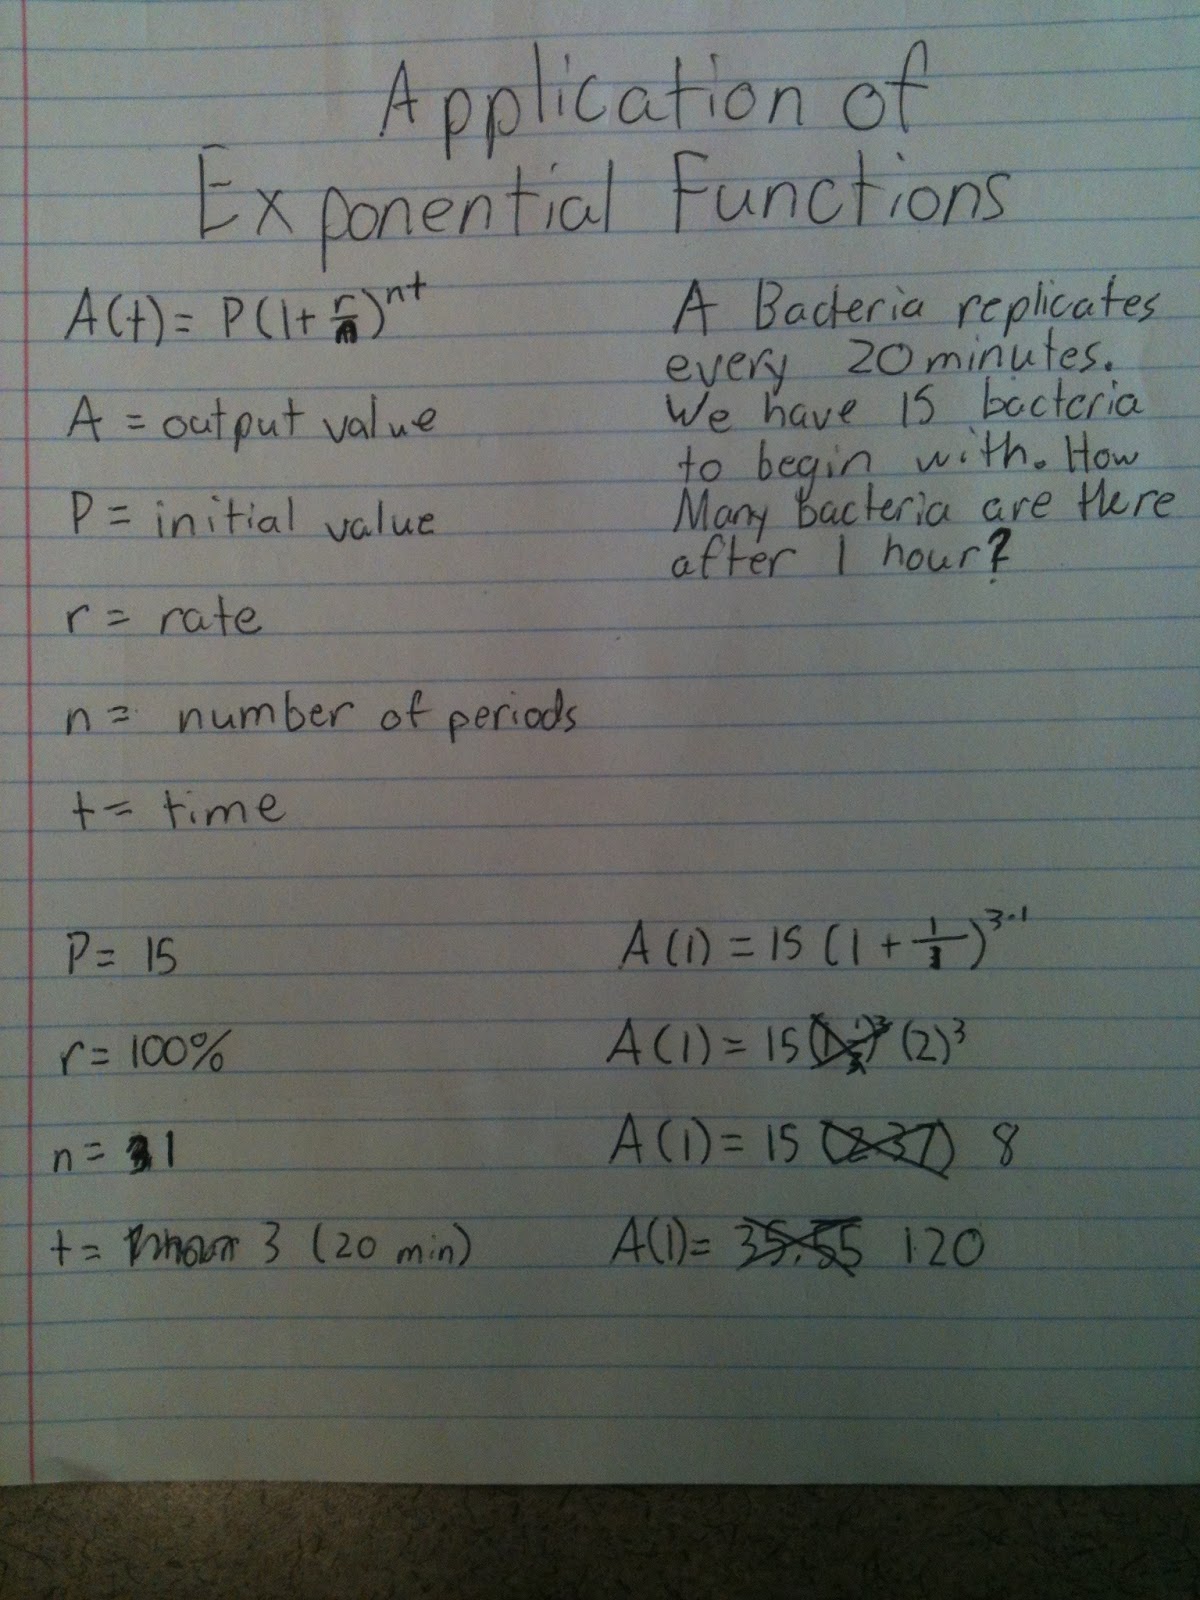 Application of
Exponential Functions
A(t) = P(1+ r/n)^nt
A = output value
P = initial value
r = rate
n = number of periods
t = time
A Bacteria replicates
every 20 minutes.
We have 15 bacteria
to begin with. How
Many bacteria are there
after 1 hour?
P = 15
r = 100%
n = 1
t = 3 (20 min)
A(1) = 15 (1 + 1/1)^3·1
A(1) = 15 (2)^3
A(1) = 15 (2.37) 8
A(1) = 35.55 120